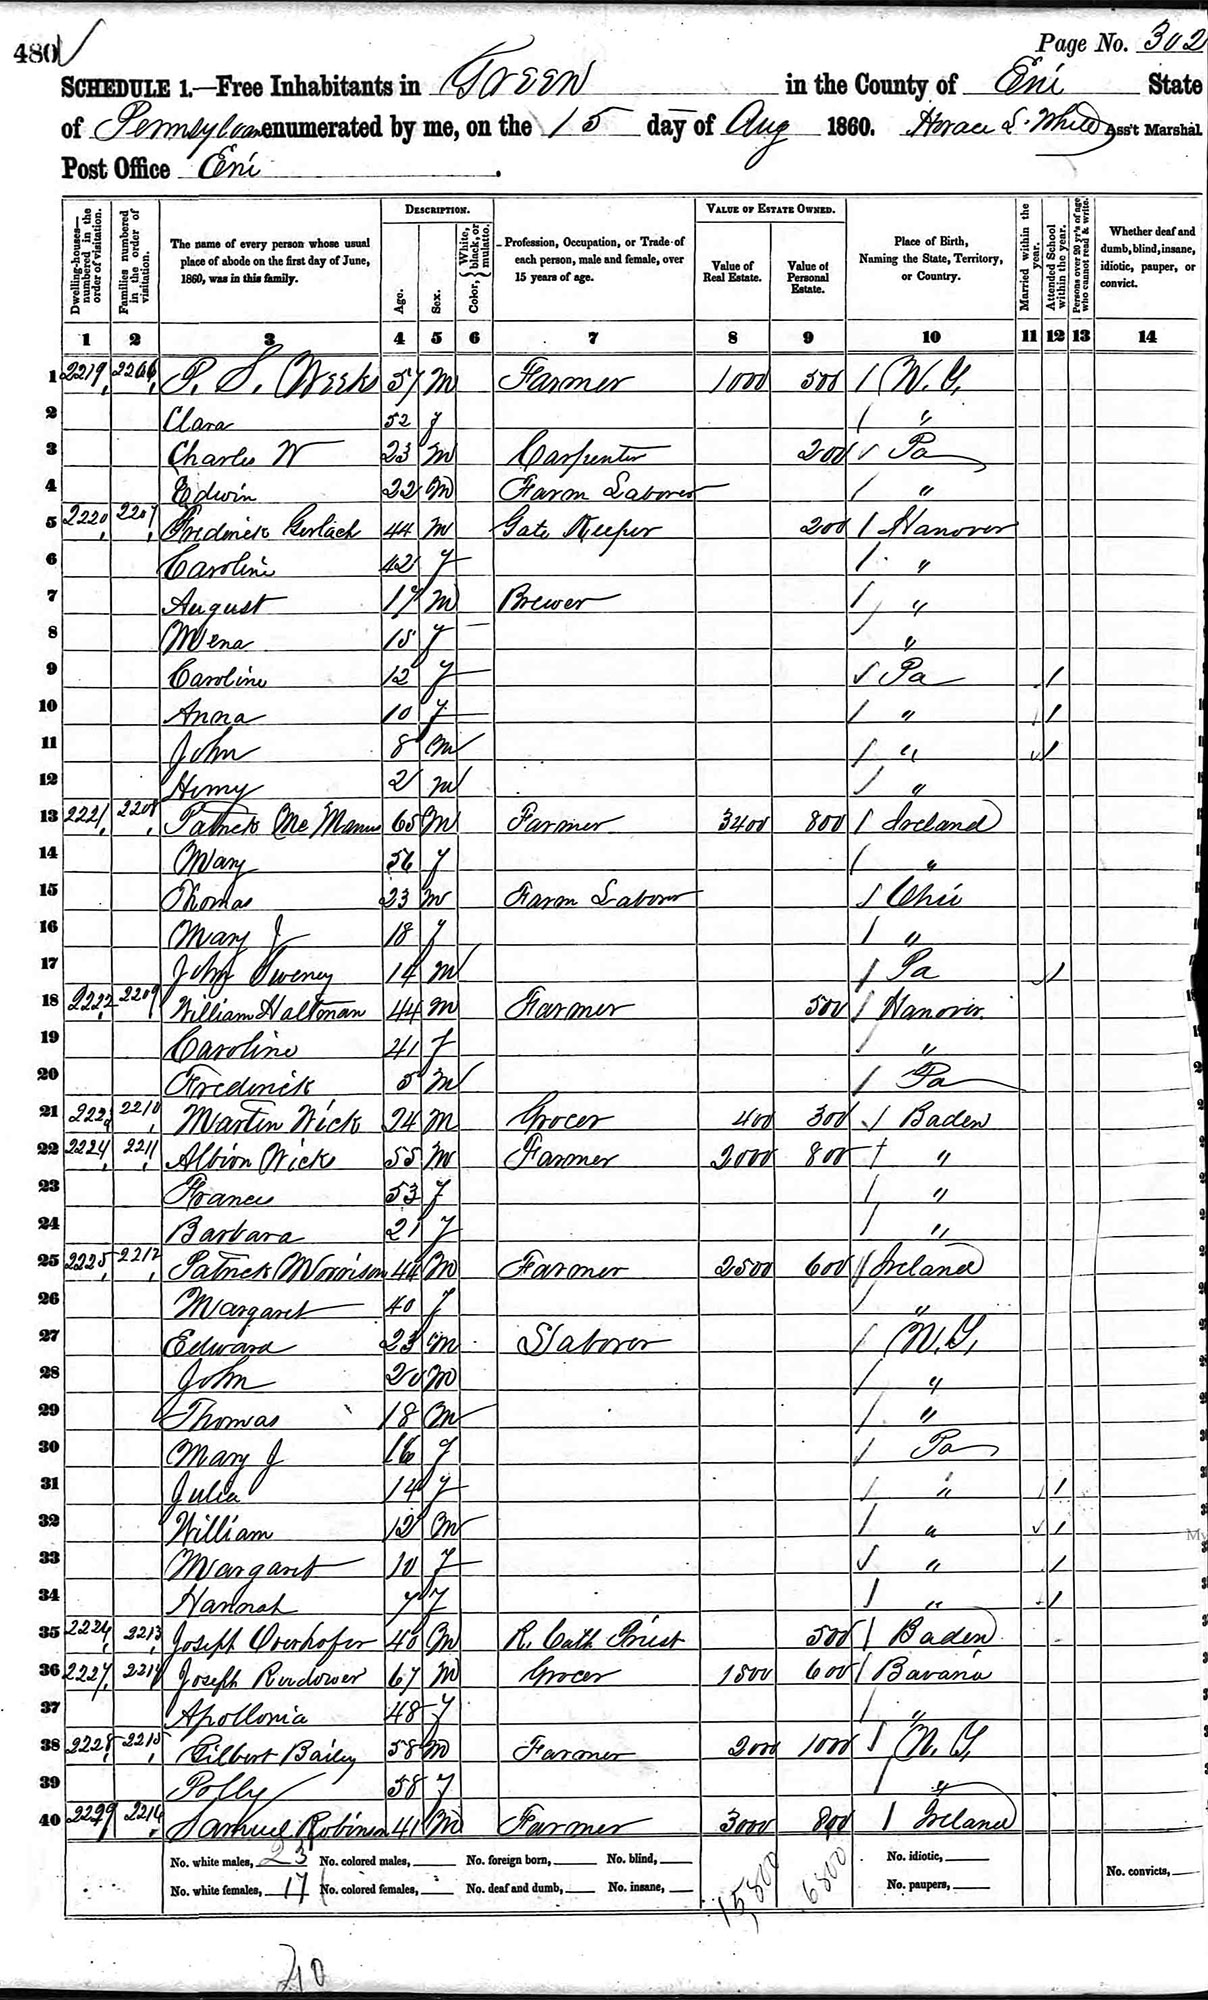 480 ✓
Page No. 302
SCHEDULE 1.—Free Inhabitants in Green in the County of Erie State
of Pennsylvan enumerated by me, on the 15 day of Aug 1860. Horace L. White Ass't Marshal
Post Office Erie.
Dwelling-houses—numbered in the order of visitation.
Families numbered in the order of visitation.
The name of every person whose usual place of abode on the first day of June, 1860, was in this family.
DESCRIPTION.
Age.
Sex.
Color, { White, black, or mulatto.
Profession, Occupation, or Trade of each person, male and female, over 15 years of age.
VALUE OF ESTATE OWNED.
Value of Real Estate.
Value of Personal Estate.
Place of Birth, Naming the State, Territory, or Country.
Married within the year.
Attended School within the year.
Persons over 20 y'rs of age who cannot read & write.
Whether deaf and dumb, blind, insane, idiotic, pauper, or convict.
1 2 3 4 5 6 7 8 9 10 11 12 13 14
1 2219 2206 P. S. Weeks 57 M Farmer 1000 500 / N.Y.
2 Clara 52 f / "
3 Charles W 23 M Carpenter 200 / Pa
4 Edwin 22 M Farm Laborer / "
5 2220 2207 Frederick Gerlach 44 M Gate Keeper 200 / Hanover
6 Caroline 42 f / "
7 August 17 M Brewer / "
8 Mena 15 f / "
9 Caroline 12 f / Pa /
10 Anna 10 f / " /
11 John 8 M / " /
12 Henry 2 M / "
13 2221 2208 Patrick McManus 65 M Farmer 3400 800 / Ireland
14 Mary 56 f / "
15 Thomas 23 M Farm Laborer / Ohio
16 Mary J 18 f / "
17 John Sweney 14 M / Pa /
18 2222 2209 William Haltman 44 M Farmer 500 / Hanover
19 Caroline 41 f / "
20 Frederick 5 M / Pa
21 2223 2210 Martin Wick 24 M Grocer 400 300 / Baden
22 2224 2211 Albion Wicks 55 M Farmer 2000 800 / "
23 Frances 53 f / "
24 Barbara 21 f / "
25 2225 2212 Patrick Morrison 44 M Farmer 2500 600 / Ireland
26 Margaret 40 f / "
27 Edward 23 M Laborer / N.Y.
28 John 20 M / "
29 Thomas 18 M / "
30 Mary J 16 f / Pa
31 Julia 14 f / " /
32 William 12 M / " /
33 Margaret 10 f / " /
34 Hannah 7 f / " /
35 2226 2213 Joseph Overhofer 40 M R. Cath. Priest 500 / Baden
36 2227 2214 Joseph 67 M Grocer 1500 600 / Bavaria
37 Apollonia 48 f / "
38 2228 2215 Gilbert Bailey 58 M Farmer 2000 1000 / N.Y.
39 Polly 58 f / "
40 2229 2216 Samuel Robinson 41 M Farmer 3000 800 / Ireland
No. white males, 23 No. colored males, No. foreign born, No. blind, No. idiotic,
No. white females, 17 No. colored females, No. deaf and dumb, No. insane, 15,800 6800 No. paupers, No. convicts,
40